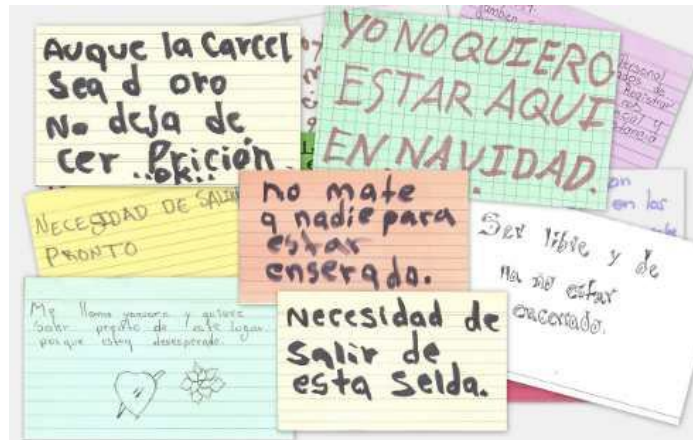 Auque la Carcel
sea d oro
No deja de
cer Prición
..ok..
YO NO QUIERO
ESTAR AQUI
EN NAVIDAD.
Personal
NECESIDAD DE SALIR
PRONTO
no mate
a nadie para
estar
enserado.
en los
Ser libre y de
no estar
encerrado.
My llama yanuara y quiero
salir prontito de este lugar.
porque estoy desesperada.
Necesidad de
Salir de
esta Selda.